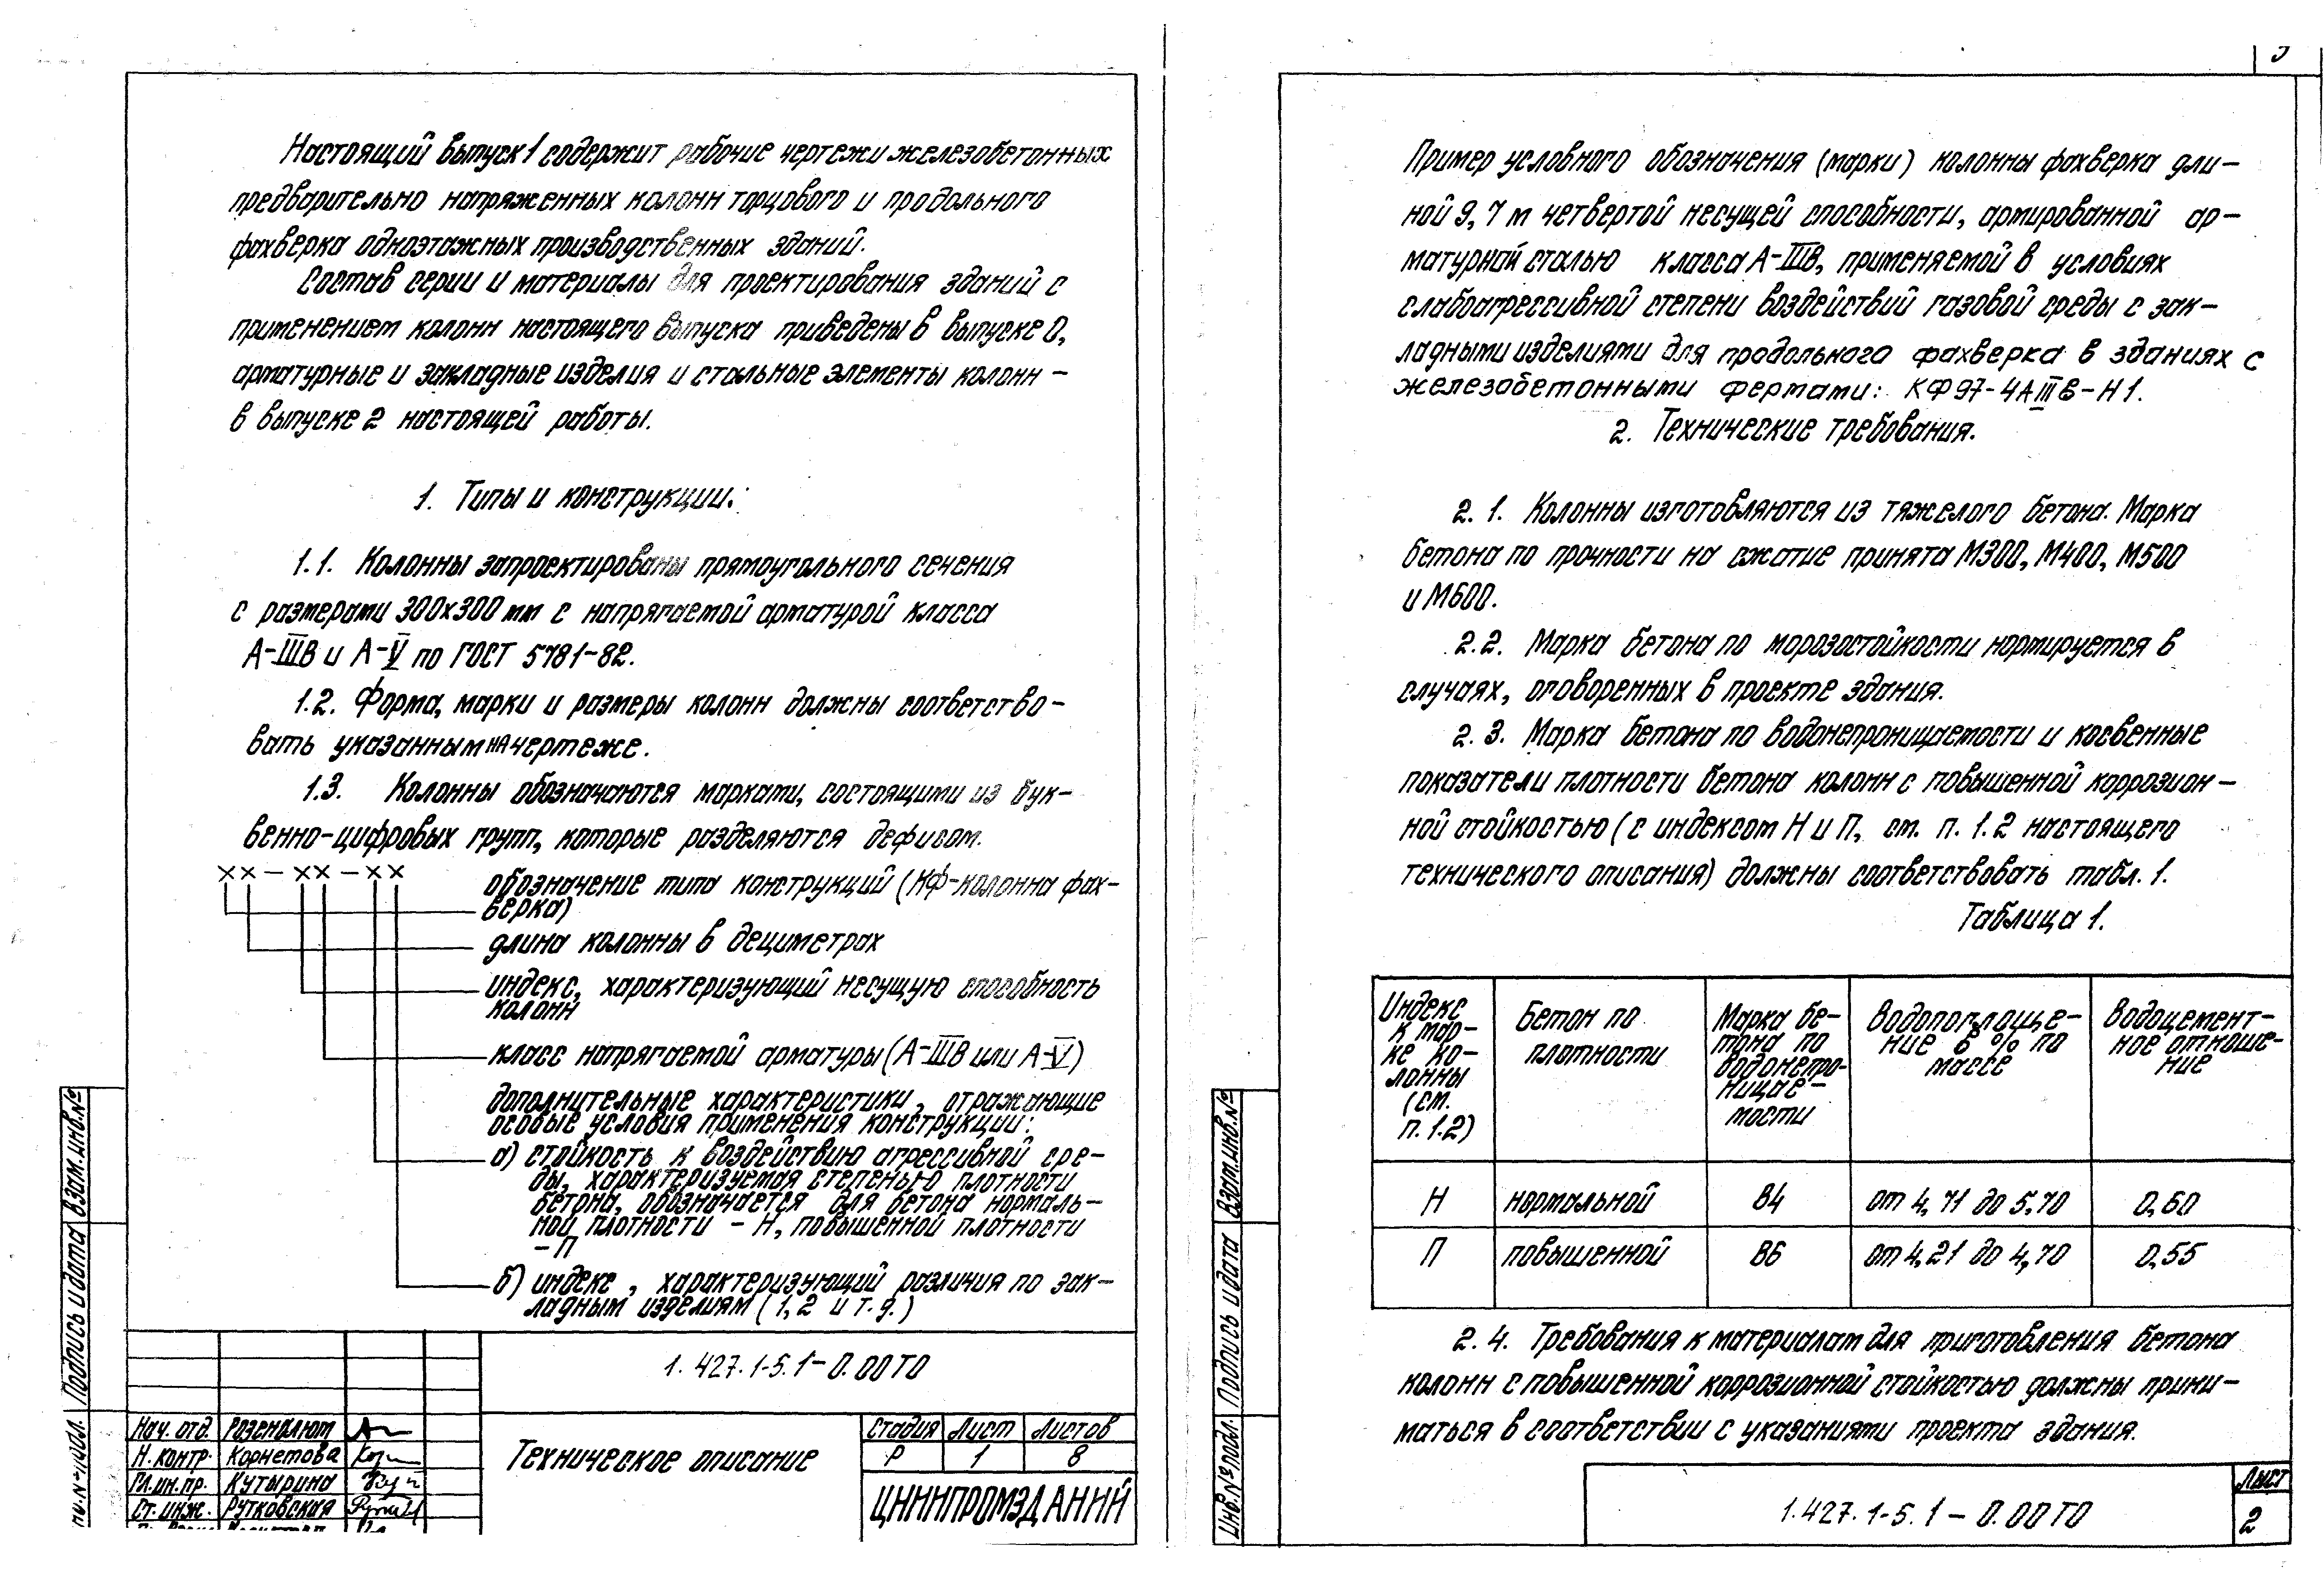 Настоящий выпуск 1 содержит рабочие чертежи железобетонных
предварительно напряженных колонн торцового и продольного
фахверка одноэтажных производственных зданий.
Состав серии и материалы для проектирования зданий с
применением колонн настоящего выпуска приведены в выпуске 0,
арматурные и закладные изделия и стальные элементы колонн –
в выпуске 2 настоящей работы.
1. Типы и конструкции.
1.1. Колонны запроектированы прямоугольного сечения
с размерами 300х300 мм с напрягаемой арматурой класса
А-IIIВ и А-V по ГОСТ 5781-82.
1.2. Форма, марки и размеры колонн должны соответство-
вать указанным на чертеже.
1.3. Колонны обозначаются марками, состоящими из бук-
венно-цифровых групп, которые разделяются дефисом.
×× – ×× – ××
обозначение типа конструкций (КФ-колонна фах-
верка)
длина колонны в дециметрах
индекс, характеризующий несущую способность
колонн
класс напрягаемой арматуры (А-IIIВ или А-V)
дополнительные характеристики, отражающие
особые условия применения конструкций:
а) стойкость к воздействию агрессивной сре-
ды, характеризуемая степенью плотности
бетона, обозначается для бетона нормаль-
ной плотности – Н, повышенной плотности
– П
б) индекс, характеризующий различия по зак-
ладным изделиям (1, 2 и т.д.)
1.427.1-5.1-0.00ТО
Нач. отд. Розенблюм
Н. контр. Корнетова
Гл. ин. пр. Кутырина
Ст. инж. Рутковская
Техническое описание
Стадия Лист Листов
Р 1 8
ЦНИИПРОМЗДАНИЙ
Взам. инв. №
Подпись и дата
Пример условного обозначения (марки) колонны фахверка дли-
ной 9,7 м четвертой несущей способности, армированной ар-
матурной сталью класса А-IIIВ, применяемой в условиях
слабоагрессивной степени воздействий газовой среды с зак-
ладными изделиями для продольного фахверка в зданиях с
железобетонными фермами: КФ97-4АIIIВ-Н1.
2. Технические требования.
2.1. Колонны изготовляются из тяжелого бетона. Марка
бетона по прочности на сжатие принята М300, М400, М500
и М600.
2.2. Марка бетона по морозостойкости нормируется в
случаях, оговоренных в проекте здания.
2.3. Марка бетона по водонепроницаемости и косвенные
показатели плотности бетона колонн с повышенной коррозион-
ной стойкостью (с индексом Н и П, см. п. 1.2 настоящего
технического описания) должны соответствовать табл. 1.
Таблица 1.
Индекс
к мар-
ке ко-
лонны
(см.
п. 1.2)
Бетон по
плотности
Марка бе-
тона по
водонепро-
ницае-
мости
Водопоглоще-
ние в % по
массе
Водоцемент-
ное отноше-
ние
Н нормальной В4 от 4,71 до 5,70 0,60
П повышенной В6 от 4,21 до 4,70 0,55
2.4. Требования к материалам для приготовления бетона
колонн с повышенной коррозионной стойкостью должны прини-
маться в соответствии с указаниями проекта здания.
1.427.1-5.1-0.00ТО
Лист
2
Взам. инв. №
Подпись и дата
Инв. № подл.